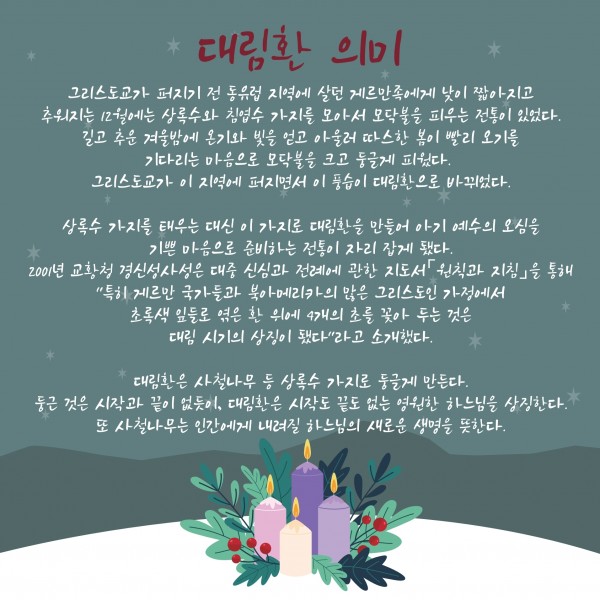 대림환 의미
그리스도교가 퍼지기 전 동유럽 지역에 살던 게르만족에게 낮이 짧아지고
추워지는 12월에는 상록수와 침엽수 가지를 모아서 모닥불을 피우는 전통이 있었다.
길고 추운 겨울밤에 온기와 빛을 얻고 아울러 따스한 봄이 빨리 오기를
기다리는 마음으로 모닥불을 크고 둥글게 피웠다.
그리스도교가 이 지역에 퍼지면서 이 풍습이 대림환으로 바뀌었다.
상록수 가지를 태우는 대신 이 가지로 대림환을 만들어 아기 예수의 오심을
기쁜 마음으로 준비하는 전통이 자리 잡게 됐다.
2001년 교황청 경신성사성은 대중 신심과 전례에 관한 지도서「원칙과 지침」을 통해
"특히 게르만 국가들과 북아메리카의 많은 그리스도인 가정에서
초록색 잎들로 엮은 환 위에 4개의 초를 꽂아 두는 것은
대림 시기의 상징이 됐다"라고 소개했다.
대림환은 사철나무 등 상록수 가지로 둥글게 만든다.
둥근 것은 시작과 끝이 없듯이, 대림환은 시작도 끝도 없는 영원한 하느님을 상징한다.
또 사철나무는 인간에게 내려질 하느님의 새로운 생명을 뜻한다.